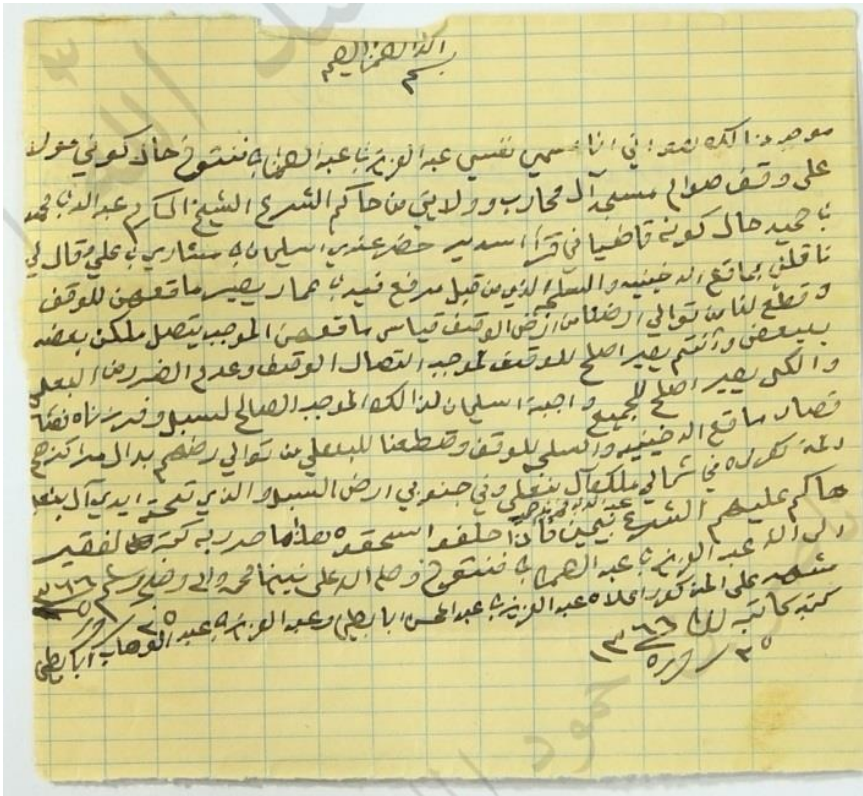 بسم الله الرحمن الرحيم
موجب ذالك هو اني انا مسمي نفسي عبدالعزيز بن عبدالرحمن بن فنتوخ حال كوني مولا
على وقف صوام مسجد آل محارب وولايتي من حاكم الشرع الشيخ المكرم عبدالله بن محمد
بن حميد حال كونه قاضيا في قرا سدير حضر عندي سليمان بن مشاري بن علي وقال لي
ناقلني بماقع الدخينيه والسلمي الذي من قبل مدفع فيد بن عمار يصير ماقعهن للوقف
وقطع لنا من توالي ارضنا من ارض الوقف قياس ماقعهن الموجب يتصل ملكن بعضه
ببعض وأنتم يصير اصلح للوقف لموجب اتصال الوقف وعدم الضرر من البعلي
والكل يصير اصلح للجميع واجبة اسليمان لذالك الموجب الصالح لسبل وفدر
فصار ماقع الدخينيه والسلمي للوقف وقطعنا للبعلي من توالي رضهم بدال مراكزهم
في شمالي ملك آل بن علي وفي جنوبي ارض السبل والذي تحت ايدي آل بن علي
حاكم عليهم الشرع بيمين فأذا حلفوا استحقوه هاذا ما صدر به كتبه الفقير
الى الله عبدالعزيز بن عبدالرحمن بن فنتوخ وصلى الله على نبينا محمد واله وصحبه وسلم ١٣٦٦
شهد على المذكور اعلاه عبدالعزيز بن عبدالمحسن ابابطين وعبدالعزيز بن عبدالوهاب أبابطين
كتبه كاتبه ١٣٦٦